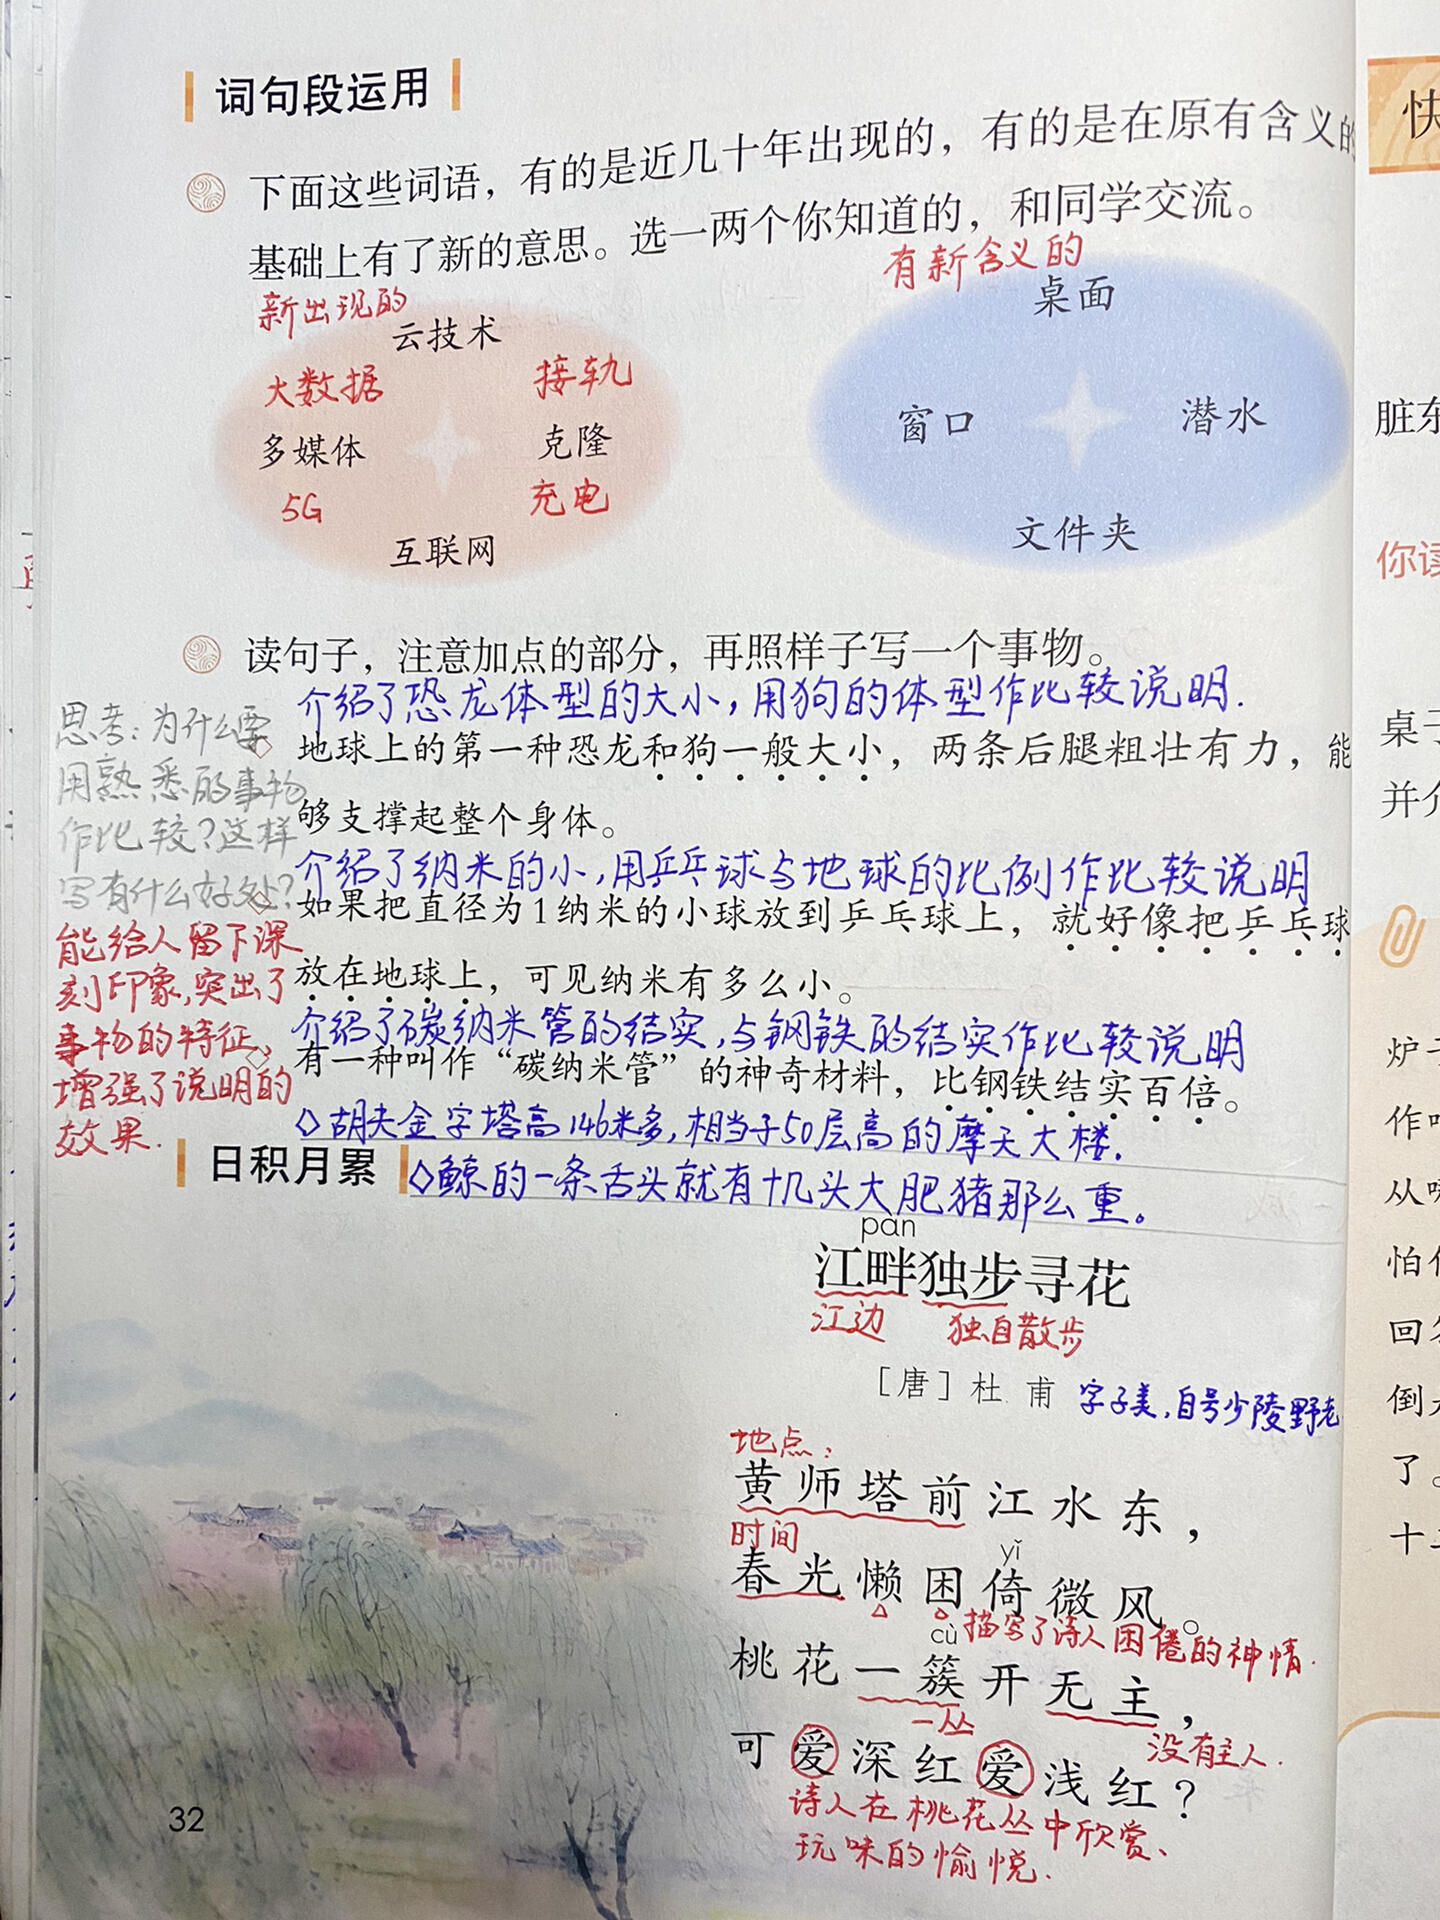 词句段运用
下面这些词语，有的是近几十年出现的，有的是在原有含义的
基础上有了新的意思。选一两个你知道的，和同学交流。
新出现的
云技术
大数据 接轨
多媒体 克隆
5G 充电
互联网
有新含义的
桌面
窗口 潜水
文件夹
读句子，注意加点的部分，再照样子写一个事物。
介绍了恐龙体型的大小，用狗的体型作比较说明.
地球上的第一种恐龙和狗一般大小，两条后腿粗壮有力，能
够支撑起整个身体。
介绍了纳米的小，用乒乓球与地球的比例作比较说明
如果把直径为1纳米的小球放到乒乓球上，就好像把乒乓球
放在地球上，可见纳米有多么小。
介绍了碳纳米管的结实，与钢铁的结实作比较说明
有一种叫作“碳纳米管”的神奇材料，比钢铁结实百倍。
◇胡夫金字塔高146米多，相当于50层高的摩天大楼.
◇鲸的一条舌头就有十几头大肥猪那么重。
思考：为什么要
用熟悉的事物
作比较？这样
写有什么好处？
能给人留下深
刻印象，突出了
事物的特征，
增强了说明的
效果.
日积月累
pàn
江畔独步寻花
江边 独自散步
［唐］杜甫 字子美，自号少陵野老
地点：
黄师塔前江水东，
时间
yǐ
春光懒困倚微风。
描写了诗人困倦的神情.
cù
桃花一簇开无主，
一丛 没有主人.
可爱深红爱浅红？
诗人在桃花丛中欣赏、
玩味的愉悦.
32
快
脏东
你读
桌子
并介
炉子
作
怕
回答
倒
了。
十